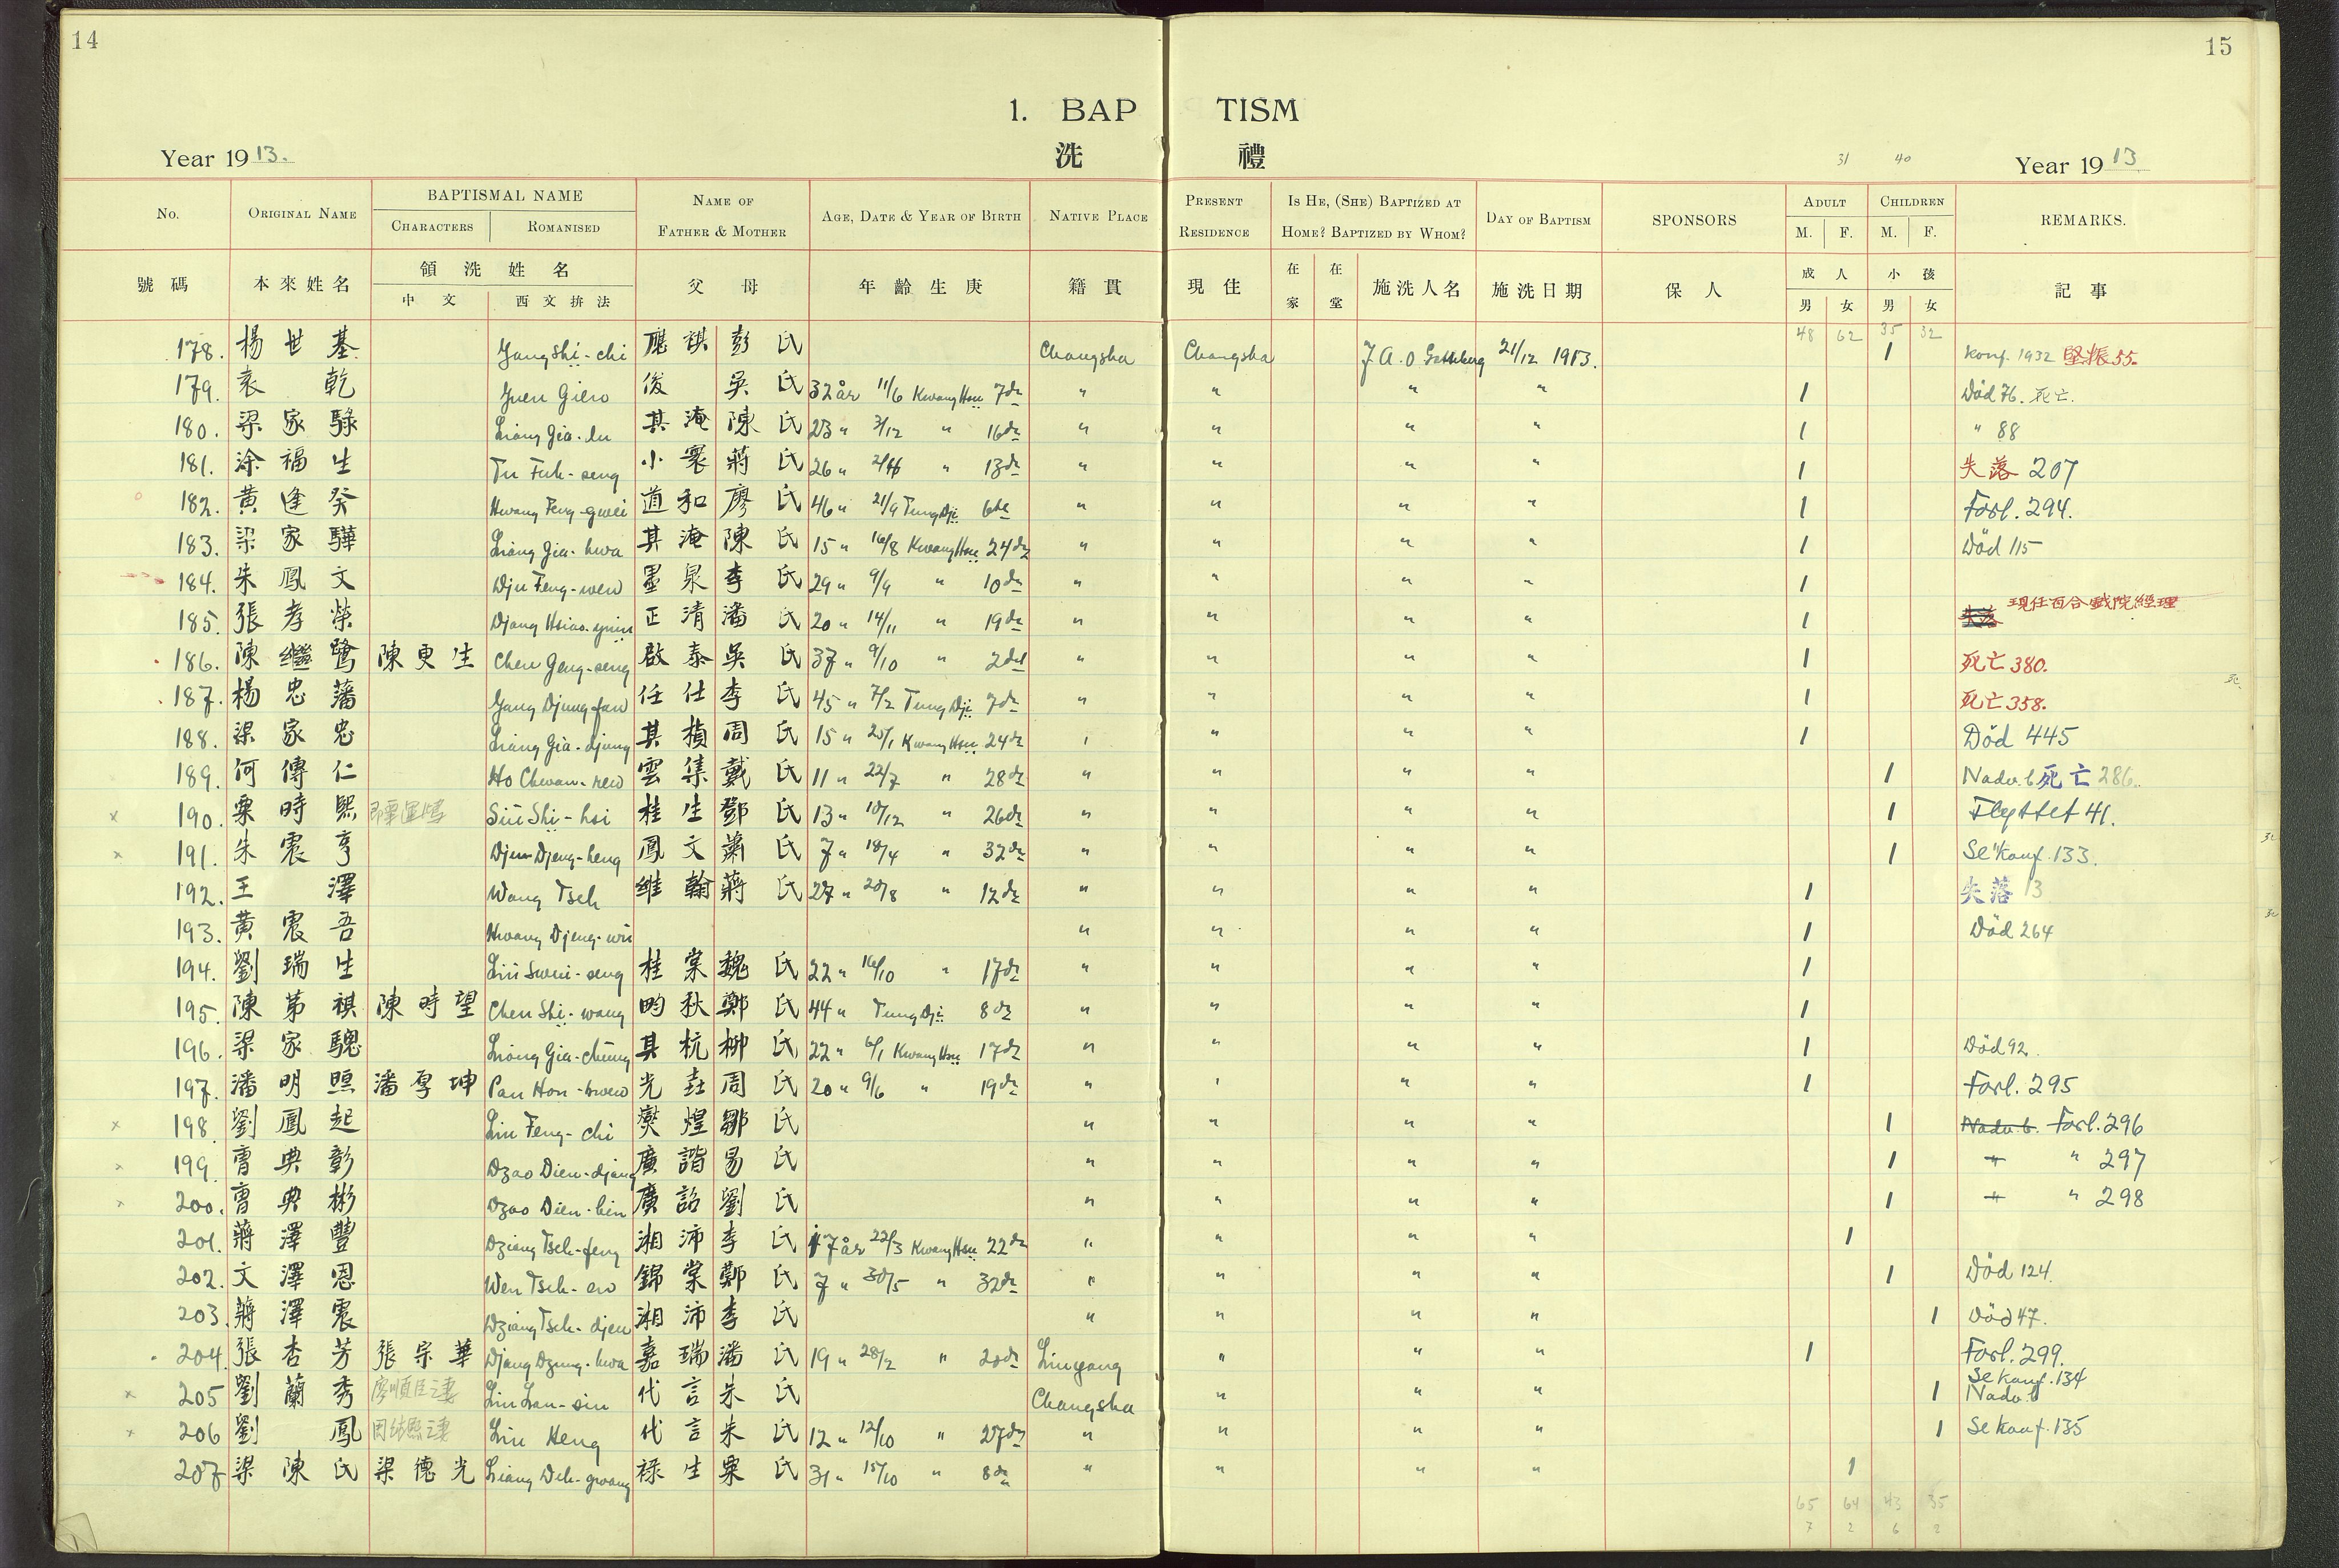 14
15
1. BAP TISM
洗 禮
Year 1913.
31 40
Year 1913
No. ORIGINAL NAME BAPTISMAL NAME CHARACTERS ROMANISED NAME OF FATHER & MOTHER AGE, DATE & YEAR OF BIRTH NATIVE PLACE PRESENT RESIDENCE IS HE, (SHE) BAPTIZED AT HOME? BAPTIZED BY WHOM? DAY OF BAPTISM SPONSORS ADULT M. F. CHILDREN M. F. REMARKS.
號碼 本來姓名 領洗姓名 中文 西文拚法 父母 年齡生庚 籍貫 現住 在家 在堂 施洗人名 施洗日期 保人 成人 男 女 小孩 男 女 記事
48 62 35 32
178. 楊世基 Yang Shi-chi 應祺 彭氏 Changsha Changsha J A. O Gotteberg 21/12 1913. 1 Konf. 1932 堅振 55.
179. 袁乾 Yuen Gien 俊 吳氏 32 år 11/6 Kwang Hsu 7de " " " " 1 Död 76. 死亡.
180. 梁家騄 Liang Gia-lu 其淹 陳氏 23 " 3/12 " 16de " " " " 1 " 88
181. 涂福生 Tu Fuh-seng 小寰 蔣氏 26 " " 13de " " " " 1 失落 207
182. 黃逢癸 Hwang Feng-gwei 道和 廖氏 46 " 21/9 Tung Dji 6te " " " " 1 Forl. 294.
183. 梁家驊 Liang Gia-hwa 其淹 陳氏 15 " 16/8 Kwang Hsu 24de " " " " 1 Död 115
184. 朱鳳文 Dju Feng-wen 墨泉 李氏 29 " 9/9 " 10de " " " " 1
185. 張孝榮 Djang Hsiao-yuin 正清 潘氏 20 " 14/11 " 19de " " " " 1 失落 現任百合戲院經理
186. 陳繼鷺 陳更生 Chen Geng-seng 啟泰 吳氏 37 " 9/10 " 2det " " " " 1 死亡 380.
187. 楊忠藩 Yang Djung-fan 任仕 李氏 45 " 7/2 Tung Dji 7de " " " " 1 死亡 358.
188. 梁家忠 Liang Gia-djung 其楨 周氏 15 " 25/1 Kwang Hsu 24de " " " " 1 Död 445
189. 何傳仁 Ho Chwan-ren 雲集 戴氏 11 " 22/7 " 28de " " " " 1 Nadv. b 死亡 286.
190. 粟時熙 Sü Shi-hsi 桂生 鄧氏 13 " 10/12 " 26de " " " " 1 Flyttet 41.
191. 朱震亨 Dju Djeng-heng 鳳文 蕭氏 7 " 18/4 " 32de " " " " 1 Se Konf. 133.
192. 王澤 Wang Tseh 維翰 蔣氏 27 " 20/8 " 12de " " " " 1 失落 13
193. 黃震吾 Hwang Djeng-wu " " " " 1 Död 264
194. 劉瑞生 Liu Swei-seng 桂棠 魏氏 22 " 16/10 " 17de " " " " 1
195. 陳第祺 陳時望 Chen Shi-wang 畇秋 鄭氏 44 " Tung Dji 8de " " " " 1
196. 梁家驄 Liang Gia-chung 其杭 柳氏 22 " 6/1 Kwang Hsu 17de " " " " 1 Död 92.
197. 潘明照 潘厚坤 Pan Hou-kwen 光垚 周氏 20 " 9/6 " 19de " " " " 1 Forl. 295
198 劉鳳起 Liu Feng-chi 爕煌 鄒氏 " " " " 1 Nadv. b. Forl. 296
199. 曹典彰 Dzao Dien-djang 廣諧 易氏 " " " " 1 " " 297
200. 曹典彬 Dzao Dien-bin 廣詔 劉氏 " " " " 1 " " 298
201. 蔣澤豐 Dziang Tseh-feng 湘沛 李氏 17 år 22/3 Kwang Hsu 22de " " " " 1
202. 文澤恩 Wen Tseh-en 錦棠 鄭氏 7 " 30/5 " 32de " " " " 1 Död 124.
203. 蔣澤震 Dziang Tseh-djen 湘沛 李氏 " " " " 1 Död 47.
204. 張杏芳 張宗華 Djang Dzung-hwa 嘉瑞 潘氏 19 " 28/2 " 20de Liuyang " " " 1 Forl. 299.
205 劉蘭秀 廖順臣之妻 Liu Lan-siu 代言 朱氏 Changsha " " " 1 Se Konf. 134 Nadv. b
206 劉鳳 之妻 Liu Heng 代言 朱氏 12 " 12/10 " 27de " " " " 1 Se Konf. 135
207 梁陳氏 梁德光 Liang Deh-gwang 祿生 粟氏 31 " 15/10 " 8de " " " " 1
65 64 43 35
7 2 6 2